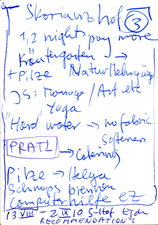 Skorianzhof 3
1,2 night pay more
Kräutergarten →
+ Pilze Naturnahrung
JS: Tomago / Art etc
Yoga
Hard water → no fabric
Softener
PROTL → Catering
Pilze → Helga
Schnaps brennen
Computerhilfe EZ
13 VIII - 2 IX 10 S-Hof
RECOMMENDATIONS